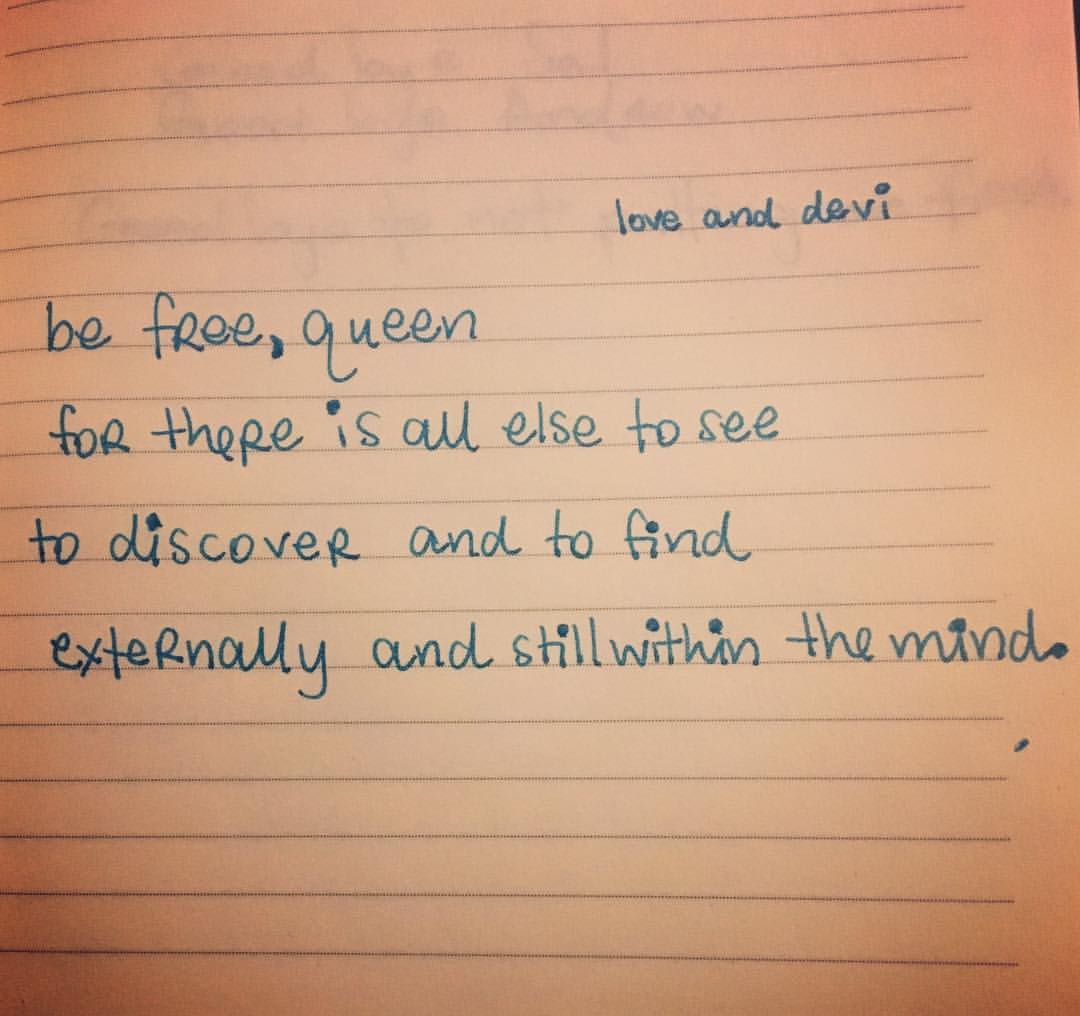 love and devi
be free, queen
for there is all else to see
to discover and to find
externally and still within the mind.